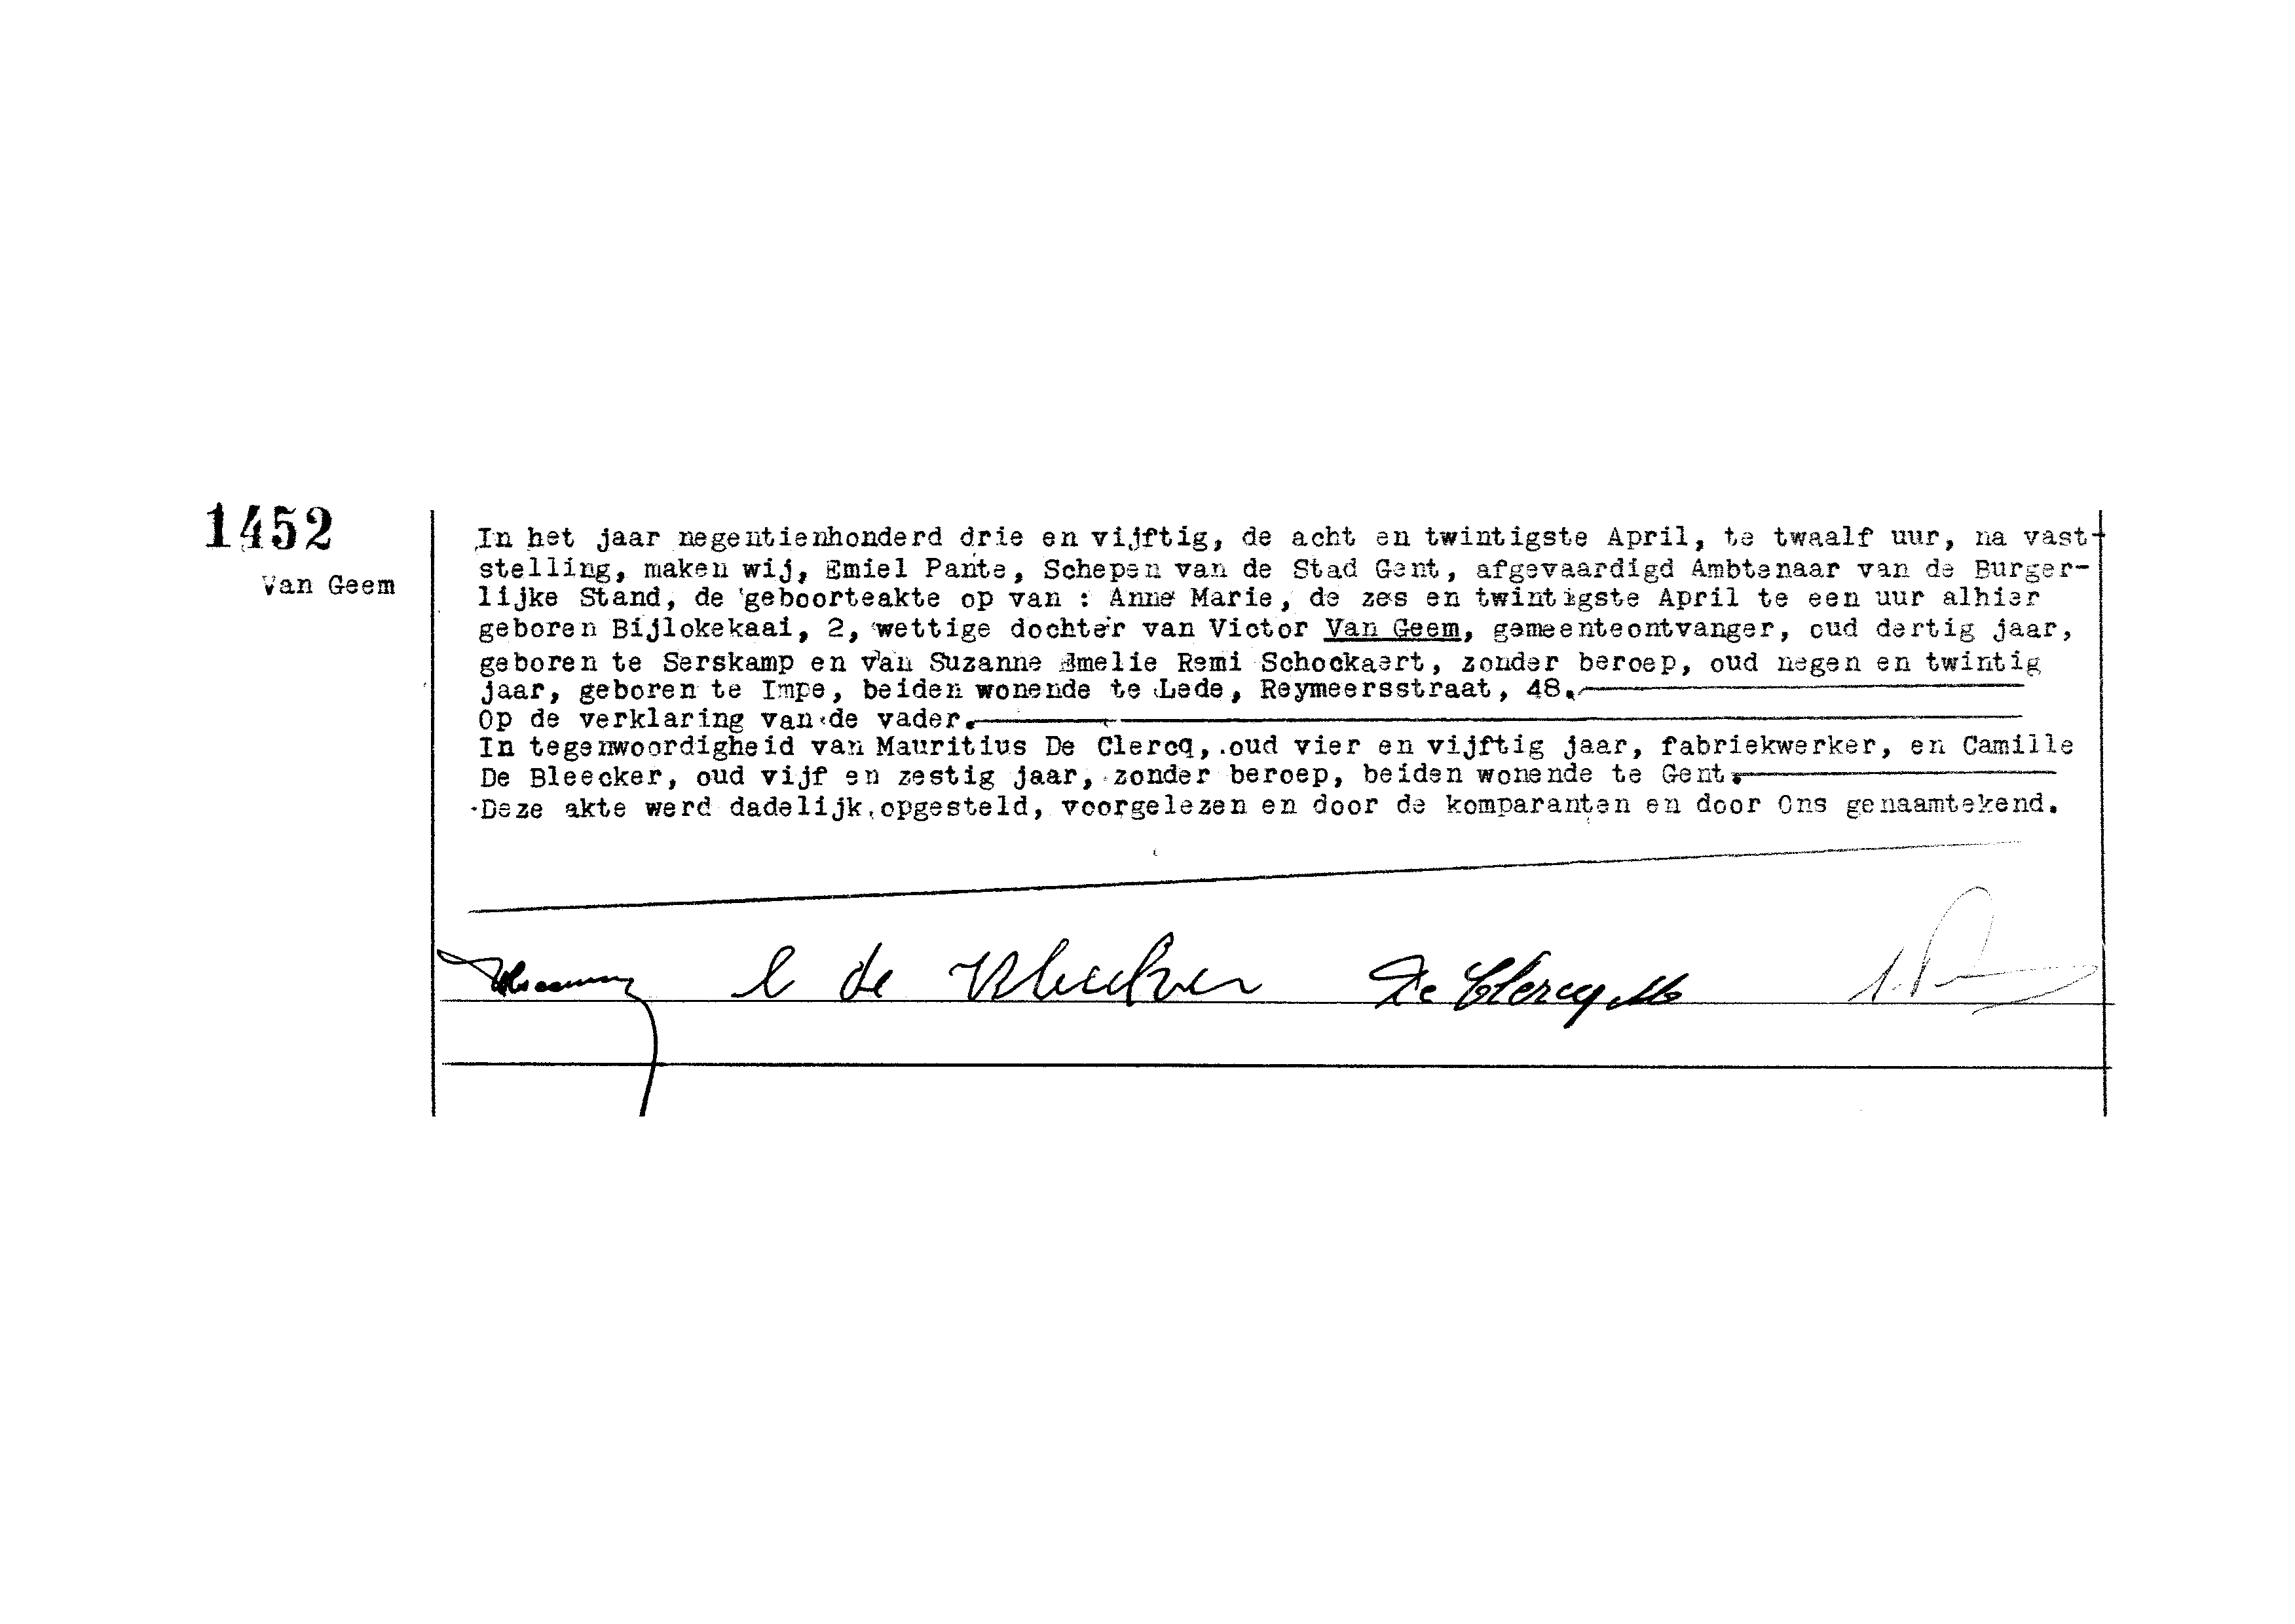 1452
Van Geem
In het jaar negentienhonderd drie en vijftig, de acht en twintigste April, te twaalf uur, na vast-
stelling, maken wij, Emiel Pante, Schepen van de Stad Gent, afgevaardigd Ambtenaar van de Burger-
lijke Stand, de geboorteakte op van : Anne Marie, de zes en twintigste April te een uur alhier
geboren Bijlokekaai, 2, wettige dochter van Victor Van Geem, gemeenteontvanger, oud dertig jaar,
geboren te Serskamp en van Suzanne Emelie Remi Schockaert, zonder beroep, oud negen en twintig
jaar, geboren te Impe, beiden wonende te Lede, Reymeersstraat, 48.
Op de verklaring van de vader.
In tegenwoordigheid van Mauritius De Clercq, oud vier en vijftig jaar, fabriekwerker, en Camille
De Bleecker, oud vijf en zestig jaar, zonder beroep, beiden wonende te Gent.
Deze akte werd dadelijk opgesteld, voorgelezen en door de komparanten en door Ons genaamtekend.
C de Bleecker De Clercq M